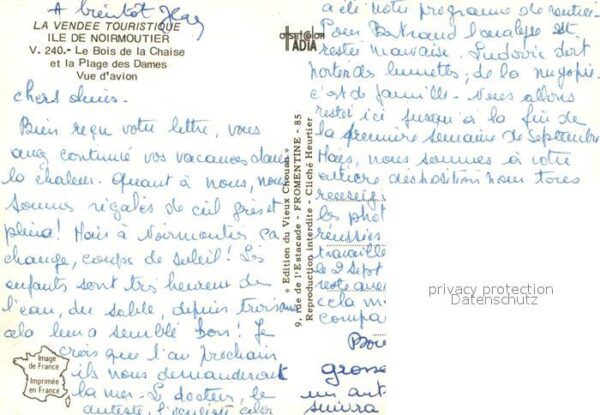 A bientôt
LA VENDEE TOURISTIQUE
ILE DE NOIRMOUTIER
V. 240.- Le Bois de la Chaise
et la Plage des Dames
Vue d'avion
chers amis.
Bien reçu votre lettre, vous
avez continué vos vacances dans
la chaleur. quant à nous, nous
sommes régalés de ciel gris et
pluie! Mais à Noirmoutier ça
change, coups de soleil! Les
enfants sont très heureux de
l'eau, du sable, depuis trois ans
cela leur a semblé bon! Je
crois que l'an prochain
ils nous demanderont
la mer. Le docteur, le
dentiste, l'oculiste cela
Image
de France
Imprimée
en France
« Edition du Vieux Chouan »
9, rue de l'Estacade - FROMENTINE - 85
Reproduction interdite - Cliché Heurtier
OFFSET COLOR
IADIA
a été notre programme de rentrée.
Pour Bertrand l'analyse est
restée mauvaise. Ludovic doit
porter des lunettes; de la myopie.
c'est de famille. Nous allons
rester ici jusqu'à la fin de
la première semaine de Septembre
Mais, nous sommes à votre
entière disposition pour tous
renseign
les phot
réussies
travaille
le 2 Sept
reste avec
cela m
compa
Bon
grosse
un aut
suivra
privacy protection
Datenschutz